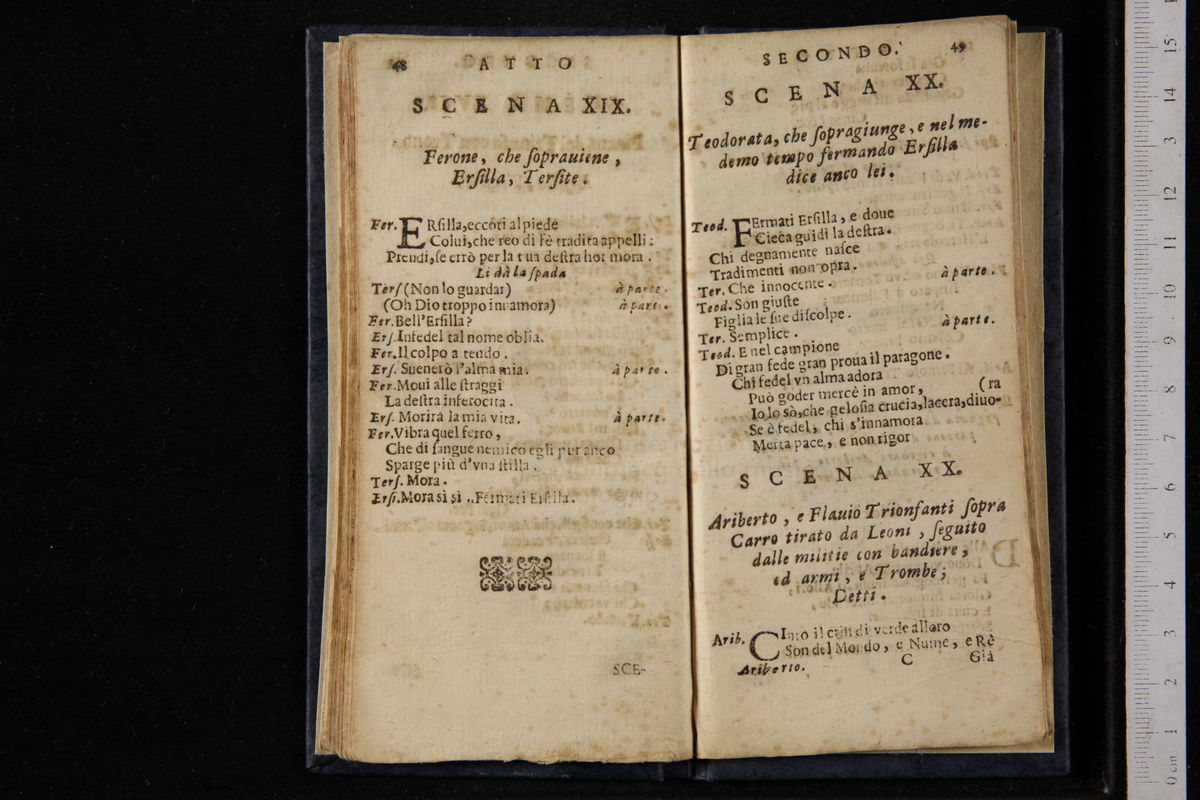 48 ATTO
SCENA XIX.
Ferone, che ſoprauiene,
Erſilla, Terſite.
Fer. ERſilla,eccoti al piede
Colui,che reo di fè tradita appelli:
Prendi,ſe errò per la tua deſtra hor mora.
Li dà la ſpada
Terſ (Non lo guardar) à parte.
(Oh Dio troppo innamora) à parte.
Fer. Bell'Erſilla?
Erſ. Infedel tal nome oblia.
Fer. Il colpo a tendo.
Erſ. Suenerò l'alma mia. à parte.
Fer. Moui alle ſtraggi
La deſtra inferocita.
Erſ. Morirà la mia vita. à parte.
Fer. Vibra quel ferro,
Che di ſangue nemico egli pur anco
Sparge più d'vna ſtilla.
Terſ. Mora.
Erſi. Mora sì sì .. Fermati Erſilla.
SCE-
SECONDO. 49
SCENA XX.
Teodorata, che ſopragiunge, e nel me-
demo tempo fermando Erſilla
dice anco lei.
Teod. FErmati Erſilla, e doue
Cieca guidi la deſtra.
Chi degnamente naſce
Tradimenti non opra. à parte.
Ter. Che innocente.
Teod. Son giuſte
Figlia le ſue diſcolpe. à parte.
Ter. Semplice.
Teod. E nel campione
Di gran fede gran proua il paragone.
Chi fedel vn alma adora
Può goder mercè in amor, (ra
Io lo sò,che geloſia crucia,lacera,diuo-
Se è fedel, chi s'innamora
Merta pace, e non rigor
SCENA XX.
Ariberto, e Flauio Trionfanti ſopra
Carro tirato da Leoni, ſeguito
dalle militie con bandiere,
ed armi, e Trombe;
Detti.
Arib. CInto il crin di verde alloro
Son del Mondo, e Nume, e Rè
Ariberto. C Già
0 cm 1 2 3 4 5 6 7 8 9 10 11 12 13 14 15